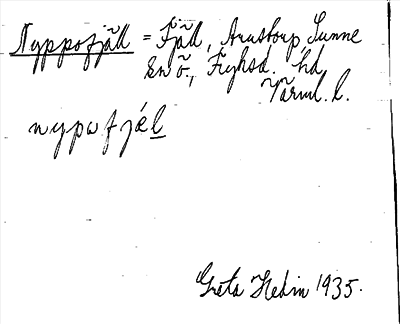 Nyppofjäll = Fjäll, Arnstorp, Sunne
En ö., Fryksd. hd
Värml. l.
nypωfjäl
Greta Hedin 1935.